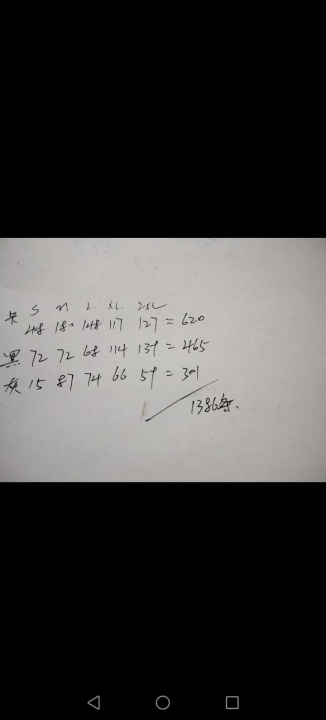 S M L XL 2XL
卡 48 180 148 117 127 = 620
黑 72 72 68 114 139 = 465
灰 15 87 74 66 59 = 301
1386套.